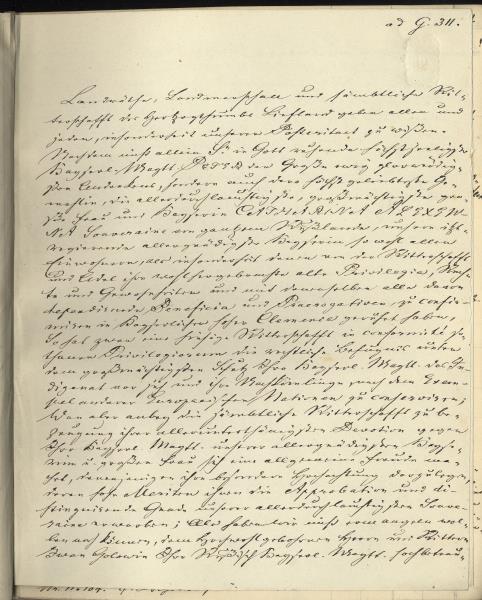 ad G. 311.
Landräthe, Landmarschall und sämbtliche Rit-
terschafft des Hertzogthumbs Liefland geben allen und
jeden, insonderheit unserer Posteritaet zu wißen.
Nachdem nicht allein S. in Gott ruhende höchstseelige
Kayserl. Maytt. PETER der Große ewig glorwürdig-
sten Andenkens, sondern auch dero höchst geliebteste Ge-
mahlin, die allerdurchlauchtigste, großmächtigste gro-
ße Frau und Kayserin CATHARINA ALEXEW-
NA Souveraine von gantz Rußlande, unsere itzt-
regierende allergnädigste Kayserin sowohl allen
Einwohnern, als insonderheit denen von der Ritterschafft
und Adel ihre wohlhergebrachte alte Privilegia, Rech-
te und Gewohnheiten und mit denenselben alle davon
dependirende Beneficia und Praerogativen, zu confir-
miren in Kayserlicher hoher Clemence geruhet haben,
So hat zwar eine hiesige Ritterschafft in conformité so-
thaner Privilegiorum die rechtliche Befugnis unter
dem großmächtigsten Schutz Ihro Kayserl. Maytt. das In-
digenat vor sich und ihre Nachkömlinge nach dem Exem-
pel anderer Europaeischen Nationen zu conserviren;
Wan aber anbey die sämbtliche Ritterschafft zu be-
zeugung ihrer allerunterthänigsten Devotion gegen
Ihro Kayserl. Maytt. unserer allergnädigsten Kayse-
rin u. großen Frau sich eine allgemeine Freude ma-
chet, denenjenigen ihre besondere Hochachtung darzulegen,
deren hohe Meriten ihnen die Approbation und di-
stinguirende Gnade unserer allerdurchlauchtigsten Souve-
raine erworben; Als haben wir nicht ermangeln wol-
len noch können, dem Hochwohlgebohrenen Herrn und Rittern
Iwan Golowin Ihro Rußisch Kayserl. Maytt. hochbetrau-